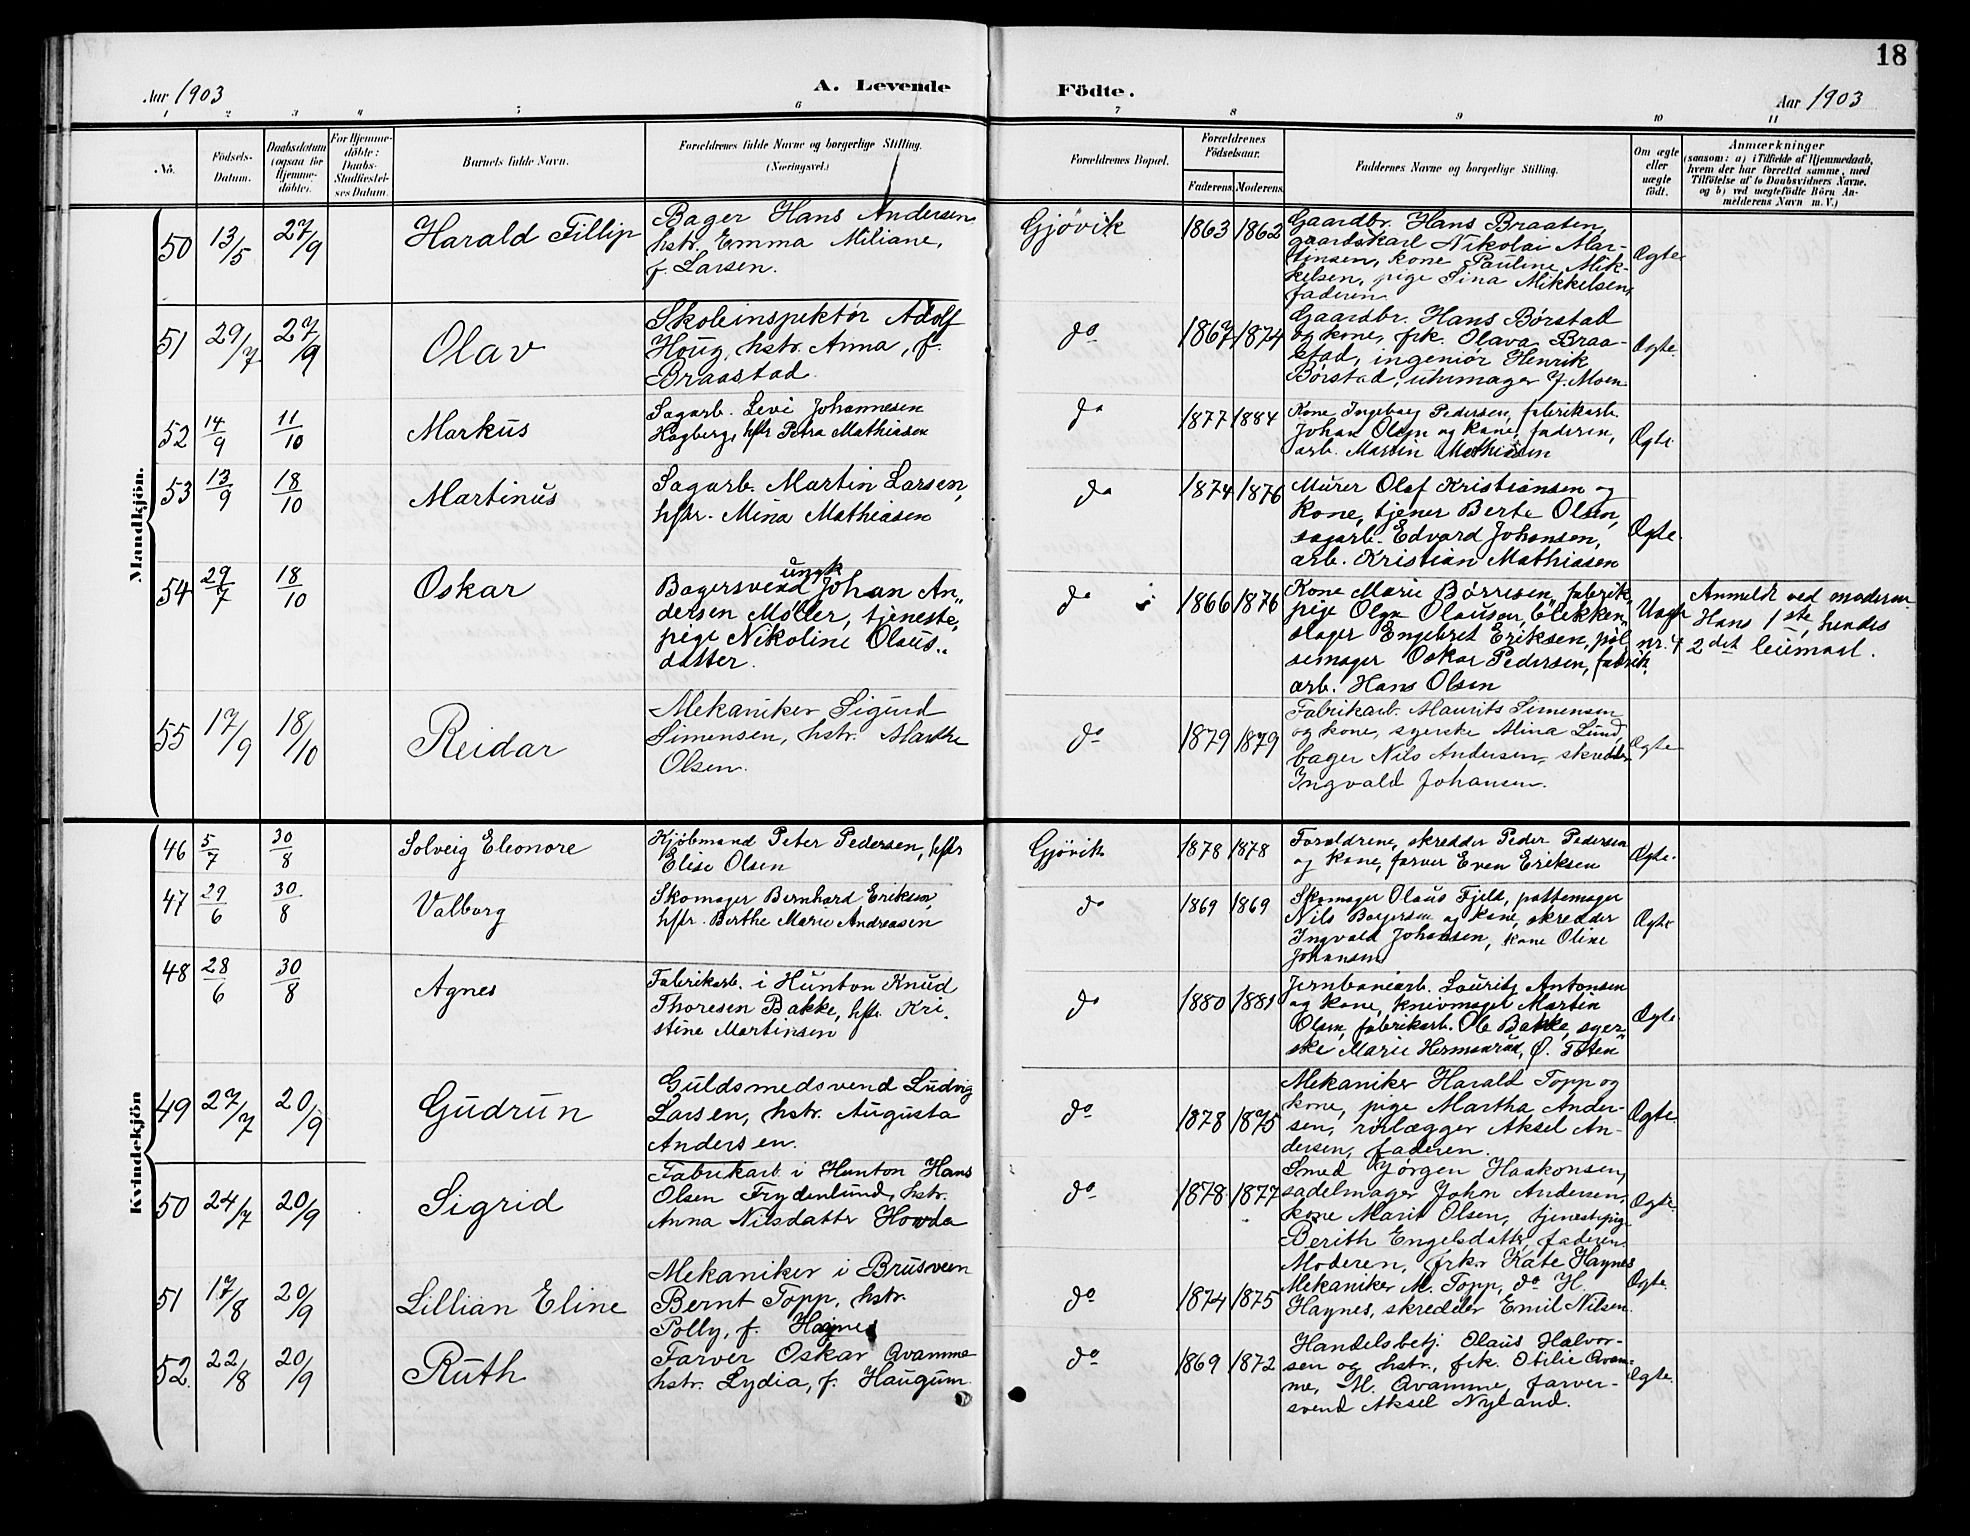 18
Aar 1903
A. Levende
Födte.
Aar 1903
1 2 3 4 5 6 7 8 9 10 11
No.
Födsels-
Datum.
Daabsdatum
(ogsaa for
Hjemme-
döbte).
For Hjemme-
döbte:
Daabs-
Stadfæstel-
ses Datum.
Barnets fulde Navn.
Forældrenes fulde Navne og borgerlige Stilling.
(Næringsvei.)
Forældrenes Bopæl.
Forældrenes
Födselsaar.
Faderens. Moderens.
Faddernes Navne og borgerlige Stilling.
Om ægte
eller
uægte
födt.
Anmærkninger
(saasom: a) i Tilfælde af Hjemmedaab,
hvem der har forrettet samme, med
Tilföielse af to Daabsvidners Navne,
og b) ved uægtefödte Börn An-
melderens Navn m. V.)
Mandkjön.
50 13/5 27/9 Harald Fillip
Bager Hans Andersen
hstr. Emma Miliane,
f. Larsen.
Gjøvik 1863 1862
Gaardbr. Hans Braaten,
gaardskarl Nikolai Mar-
tinsen, kone Pauline Mik-
kelsen, pige Sina Mikkelsen,
faderen
Ægte
51 29/7 27/9 Olav
Skoleinspektör Adolf
Houg, hstr. Anna, f.
Braastad.
do 1867 1874
Gaardbr. Hans Børstad
og kone, frk. Olava Braa-
stad, ingeniør Henrik
Børstad, uhrmager J. Moen
Ægte.
52 14/9 11/10 Markus
Sagarb. Levi Johannesen
Hagberg, hstr Petra Mathiasen
do 1877 1884
Kone Ingeborg Pedersen, fabrikarb.
Johan Olsen og kone, faderen,
arb. Martin Mathiasen
Ægte.
53 13/9 18/10 Martinus
Sagarb. Martin Larsen,
hstr. Mina Mathiasen
do 1874 1876
Murer Olaf Kristiansen og
kone, tjener Berte Olsen,
sagarb. Edvard Johansen,
arb. Kristian Mathiasen
Ægte.
54 29/7 18/10 Oskar
ungk
Bagersvend Johan An-
dersen Møller, tjeneste-
pige Nikoline Olaus-
datter.
do 1866 1876
Kone Marie Børresen, fabrik-
pige Olga Olausen, blikken-
slager Engebret Eriksen, pøl
semager Oskar Pedersen, fabrik.
arb. Hans Olsen
Uægte
nr. 4
Anmeldt ved moderen.
Hans 1ste, hendes
2det leiermaal.
55 17/9 18/10 Reidar
Mekaniker Sigurd
Simensen, hstr. Marthe
Olsen.
do 1879 1879
Fabrikarb. Maurits Simensen
og kone, syerske Mina Lund,
bager Nils Andersen, skredder
Ingvald Johansen.
Ægte
Kvindekjön
46 5/7 30/8 Solveig Eleonore
Kjöbmand Peter Pedersen, hstr
Elise Olsen
Gjøvik 1878 1878
Forældrene, skredder Peder Pedersen
og kone, farver Even Eriksen
Ægte.
47 29/6 30/8 Valborg
Skomager Bernhard Eriksen,
hstr. Berthe Marie Andreasen
do 1869 1869
Skomager Olaus Fjeld, pottemager
Nils Borgersen og kone, skredder
Ingvald Johansen, kone Oline
Johansen
Ægte
48 28/6 30/8 Agnes
Fabrikarb. i Hunton Knud
Thoresen Bakke, hstr. Kri-
stine Martinsen
do 1880 1881
Jernbanearb. Laurits Antonsen
og kone, knivmaget Martin
Olsen, fabrikarb. Ole Bakke, syer-
ske Marie Hermanrud, Ø. Toten
Ægte
49 27/7 20/9 Gudrun
Guldsmedsvend Ludvig
Larsen, hstr. Augusta
Andersen.
do 1878 1875
Mekaniker Harald Topp og
kone, pige Martha Ander-
sen, rørlægger Aksel An-
dersen, faderen.
Ægte.
50 24/7 20/9 Sigrid
Fabrikarb i Hunton Hans
Olsen Frydenlund, hstr.
Anna Nilsdatter Hovda
do 1878 1877
Smed Jörgen Haakonsen,
sadelmager John Andersen,
kone Marit Olsen, tjenestepige
Berith Engelsdatter, faderen
Ægte.
51 17/8 20/9 Lillian Eline
Mekaniker i Brusveen
Bernt Topp, hstr.
Polly, f. Haynes
do 1874 1875
Moderen, frkr Kate Haynes
Mekaniker M. Topp, do H.
Haynes, skredder Emil Nilsen.
Ægte.
52. 22/8 20/9 Ruth
Farver Oskar Qvamme
hstr. Lydia, f. Haugum.
do 1869 1872
Handelsbetj. Olaus Halvor-
sen og hstr., frk. Otilie Qvam-
me, M. Qvamme, farver-
svend Aksel Nyland.
Ægte.